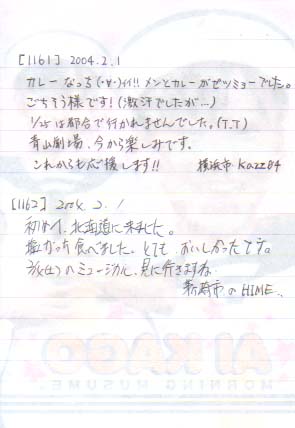 [1161] 2004.2.1
カレーなっち(・∀・)イイ!! メンとカレーがゼツミョーでした。
ごちそう様です!(激汗でしたが…)
1/25は都合で行かれませんでした。(T.T)
青山劇場、今から楽しみです。
これからも応援します!! 横浜市 Kazz84
[1162] 2004. 2. 1
初めて、北海道に来ました。
塩なっち食べました。とても、おいしかったです。
のミュージカル、見に行きますね
市のHIME..
AI KAGO
MORNING MUSUME.